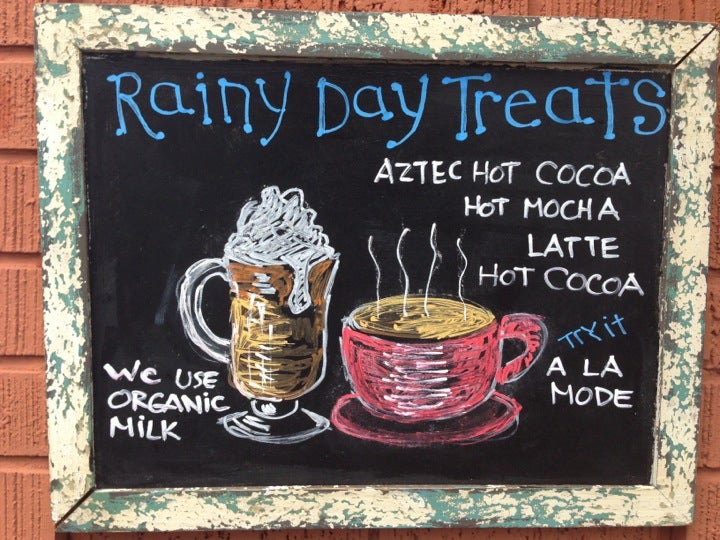 Rainy Day Treats
AZTEC HOT COCOA
HOT MOCHA
LATTE
HOT COCOA
TRY it
A LA
MODE
We USE
ORGANiC
MiLK